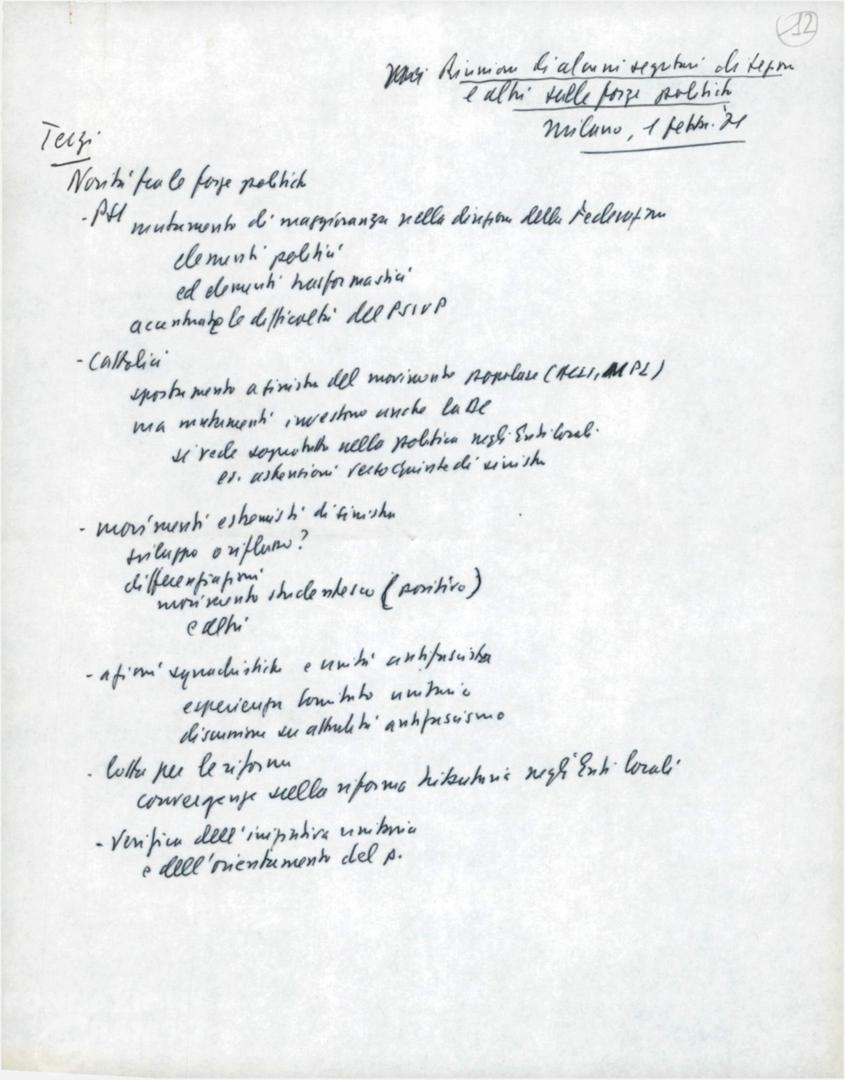 12
Riunione di alcuni segretari di sezione
e altri sulle forze politiche
Milano, 1 febbr. '71
Terzi
Novità fra le forze politiche
- PSI mutamento di maggioranza nella direzione della Federazione
elementi politici
ed elementi trasformistici
accentuate le difficoltà del PSIUP
- Cattolici
spostamento a sinistra del movimento popolare (ACLI, MPL)
ma mutamenti investono anche la DC
si vede soprattutto nella politica negli Enti locali
es. astensioni
- movimenti estremisti di sinistra
sviluppo o riflusso?
differenziazioni
movimento studentesco (positivo)
e altri
- azioni squadristiche e unità antifascista
esperienza Comitato unitario
discussione su attualità antifascismo
- lotta per le riforme
convergenze sulla riforma tributaria negli Enti locali
- Verifica dell'iniziativa unitaria
e dell'orientamento del p.